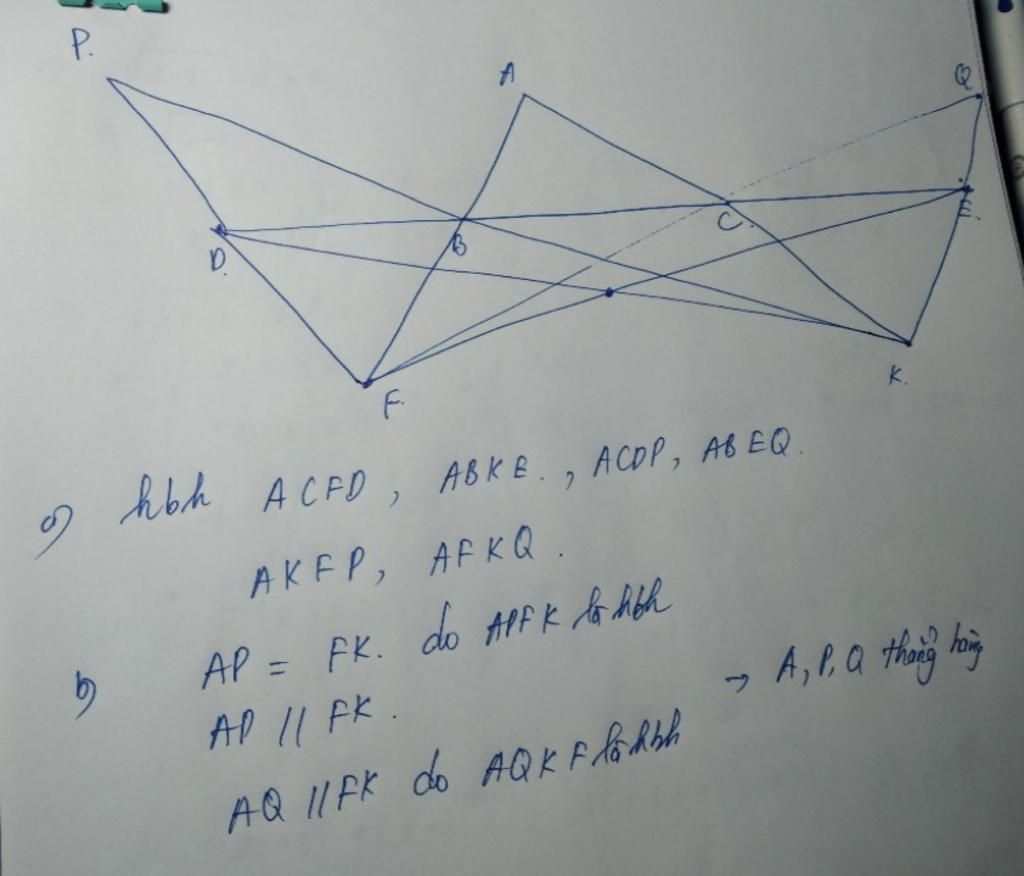 P.
A
Q
D.
B
C.
E.
F.
K.
a) hbh ACFD, ABKE., ACDP, ABEQ.
AKFP, AFKQ.
b) AP = FK. do APFK là hbh
AP // FK.
→ A, P, Q thẳng hàng
AQ // FK do AQKF là hbh